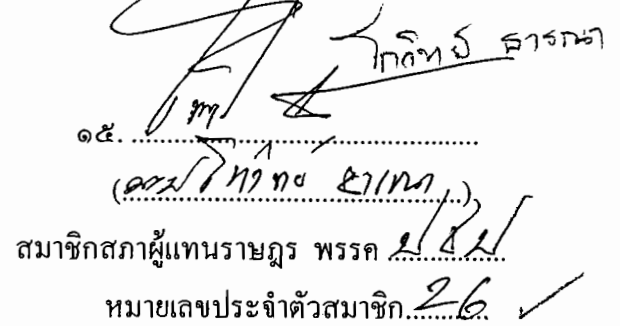 โกวิทย์ ธารณา
๑๕.
( โกวิทย์ ธารณา )
สมาชิกสภาผู้แทนราษฎร พรรค ปชป
หมายเลขประจำตัวสมาชิก 26